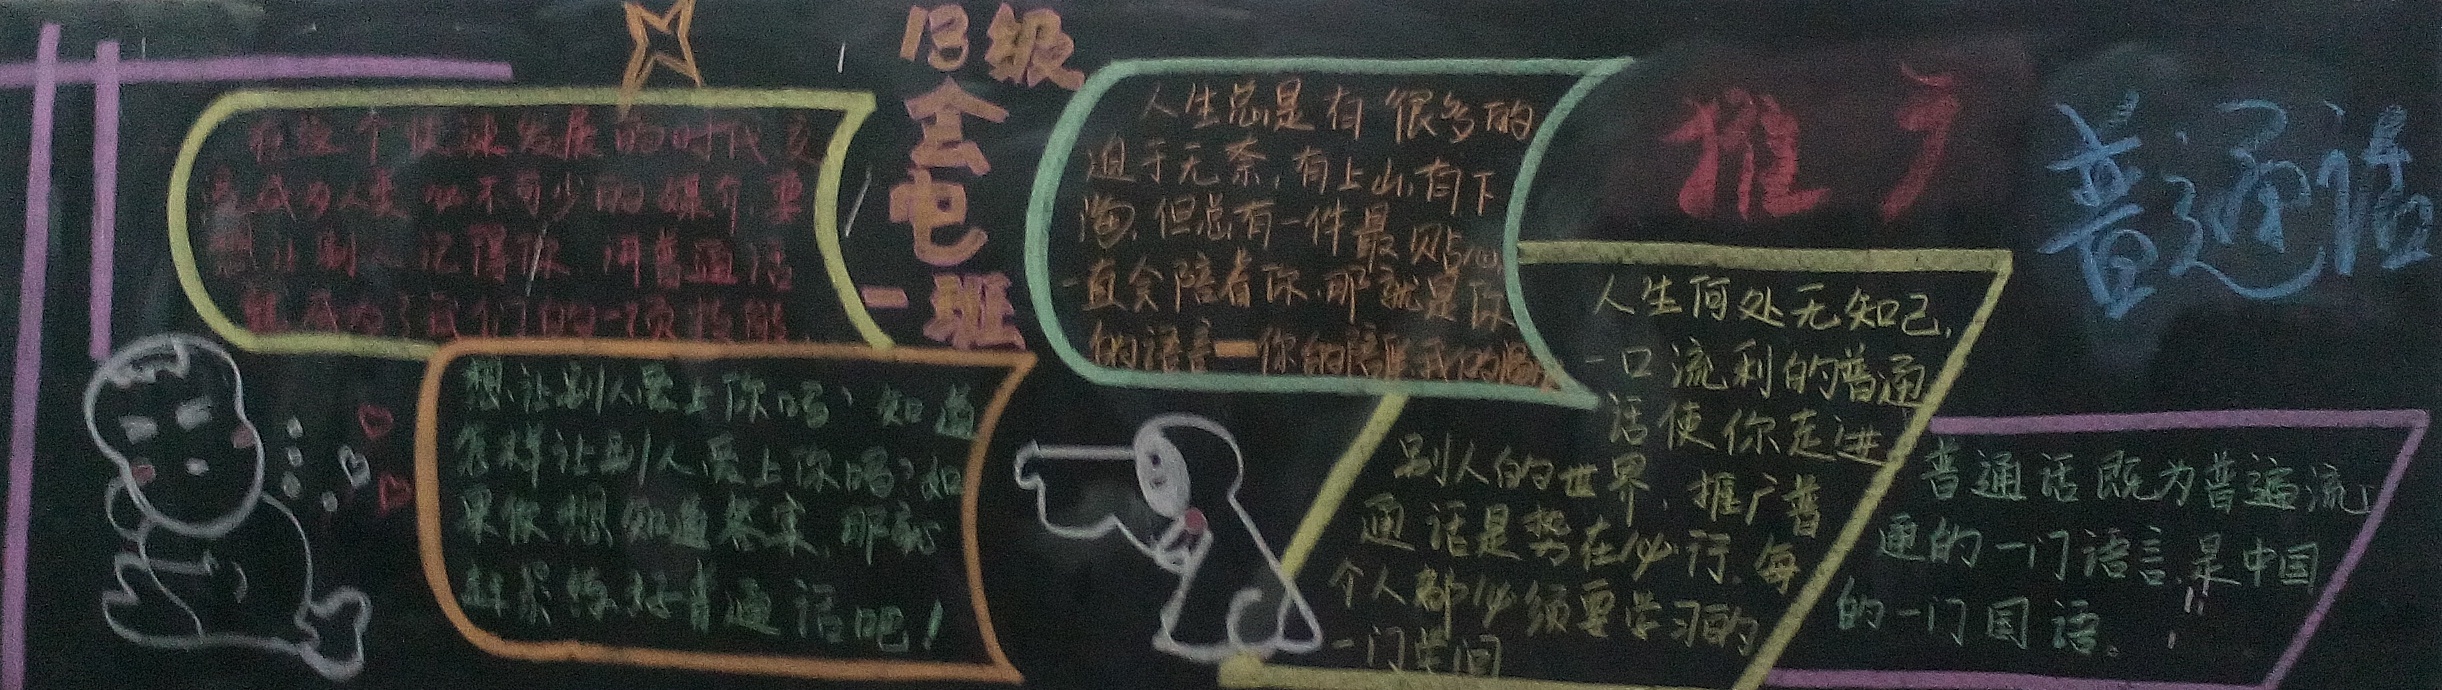 13级
会电
一班
推广
普通话
在这个快速发展的时代交
流成为人类必不可少的媒介,要
想让别人记得你,用普通话
就成为了我们的一项技能
想让别人爱上你吗?知道
怎样让别人爱上你吗?如
果你想知道答案,那就
赶紧练好普通话吧!
人生总是有很多的
迫于无奈,有上山,有下
海,但总有一件最贴心
一直会陪着你,那就是你
的语言—你的陪
人生何处无知己,
一口流利的普通
话使你走进
别人的世界,推广普
通话是势在必行,每
个人都必须要学习的
一门学问
普通话既为普遍流
通的一门语言,是中国
的一门国语。!!